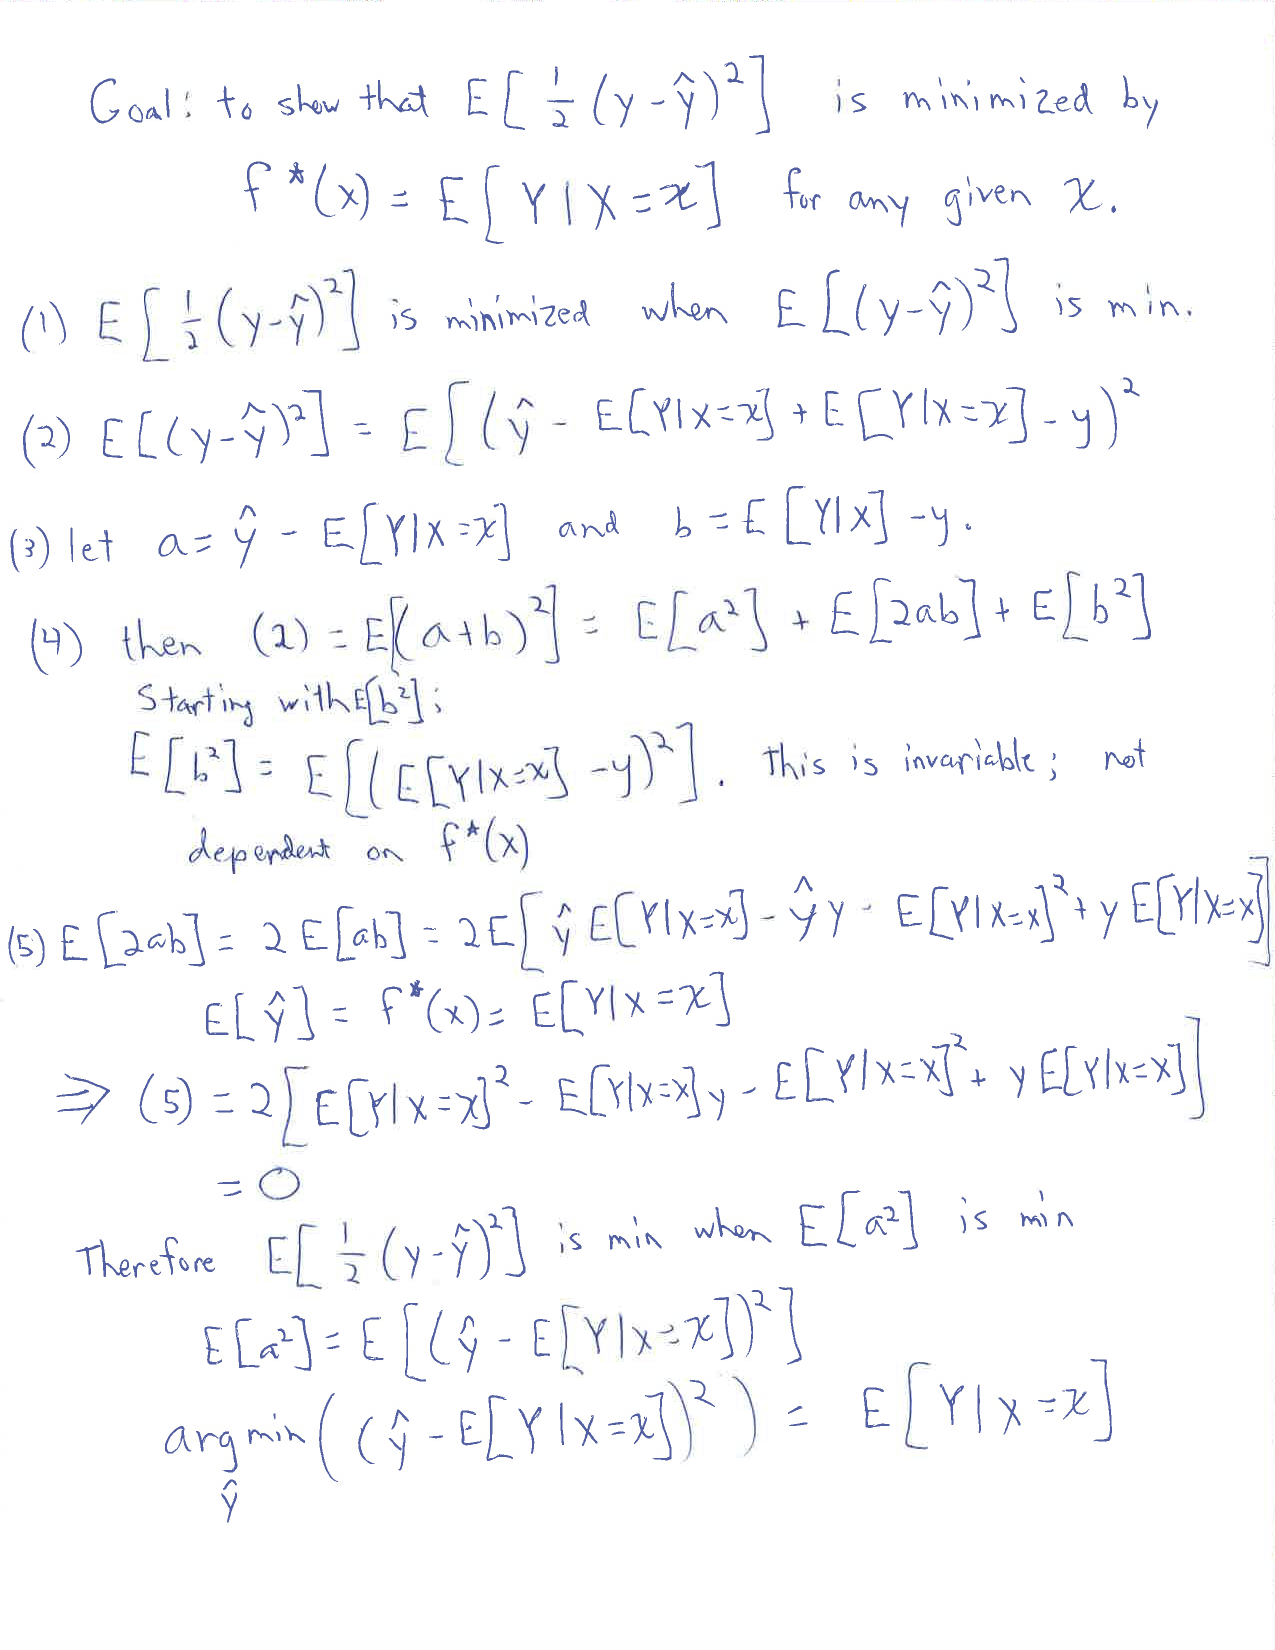 Goal: to show that E[½(y-ŷ)²] is minimized by
f*(x) = E[Y|X=x] for any given x.
(1) E[½(y-ŷ)²] is minimized when E[(y-ŷ)²] is min.
(2) E[(y-ŷ)²] = E[(ŷ - E[Y|X=x] + E[Y|X=x] - y)²
(3) let a = ŷ - E[Y|X=x] and b = E[Y|X] - y.
(4) then (2) = E[(a+b)²] = E[a²] + E[2ab] + E[b²]
Starting with E[b²];
E[b²] = E[(E[Y|X=x] - y)²]. this is invariable; not
dependent on f*(x)
(5) E[2ab] = 2E[ab] = 2E[ŷE[Y|X=x] - ŷy - E[Y|X=x]² + yE[Y|X=x]]
E[ŷ] = f*(x) = E[Y|X=x]
⇒ (5) = 2[E[Y|X=x]² - E[Y|X=x]y - E[Y|X=x]² + yE[Y|X=x]]
= 0
Therefore E[½(y-ŷ)²] is min when E[a²] is min
E[a²] = E[(ŷ - E[Y|X=x])²]
argmin((ŷ - E[Y|X=x])²) = E[Y|X=x]
ŷ